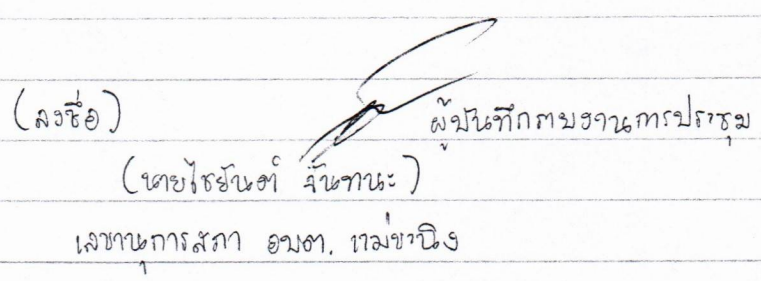 (ลงชื่อ) ผู้บันทึกรายงานการประชุม
(นายไชยันต์ จันทนะ)
เลขานุการสภา อบต. แม่ขานิง